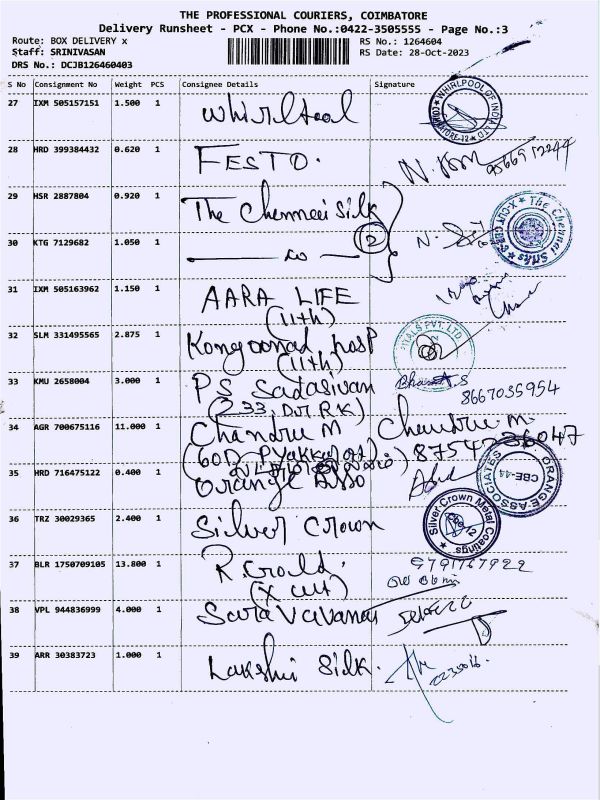 THE PROFESSIONAL COURIERS, COIMBATORE
Delivery Runsheet - PCX - Phone No.:0422-3505555 - Page No.:3
Route: BOX DELIVERY x RS No.: 1264604
Staff: SRINIVASAN RS Date: 28-Oct-2023
DRS No.: DCJB126460403
S No Consignment No Weight PCS Consignee Details Signature
27 IXM 505157151 1.500 1 Whirlpool
WHIRLPOOL OF INDIA LTD
28 HRD 399384432 0.620 1 FESTO.
29 HSR 2887804 0.920 1 The Chennai Silk
The Chennai Silks
30 KTG 7129682 1.050 1 2
31 IXM 505163962 1.150 1 AARA LIFE
(11th)
32 SLM 331495565 2.875 1 Kongoonad hosp
(11th)
PVT. LTD.
33 KMU 2658004 3.000 1 PS Sadasivan
8667035954
34 AGR 700675116 11.000 1 Chandru M Chandru M.
35 HRD 716475122 0.400 1 Orange Asso
ORANGE ASSOCIATES
CBE-44
36 TRZ 30029365 2.400 1 Silver Crown
Silver Crown Metal Coatings
37 BLR 1750709105 13.800 1 R. Gould. 9791767922
(X cut)
38 VPL 944836999 4.000 1 Saravavanas
39 ARR 30383723 1.000 1 Lakshmi Silk.